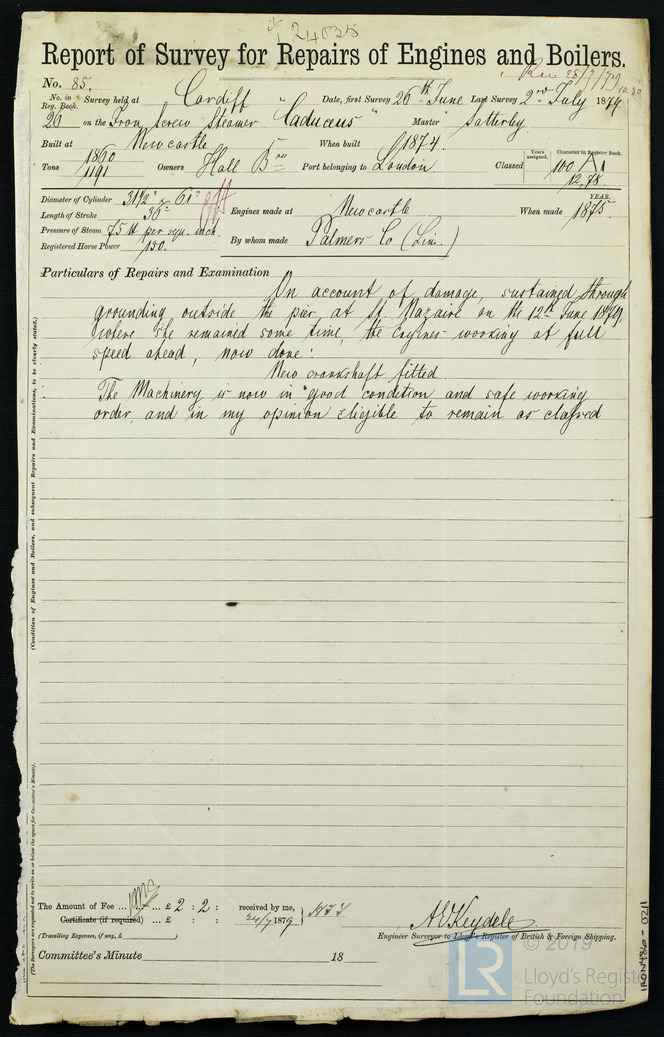 24035
Report of Survey for Repairs of Engines and Boilers.
No. 85. Rec 28/7/79
No. in Reg. Book. Survey held at Cardiff Date, first Survey 26th June Last Survey 2nd July 1879
26 on the Iron Screw Steamer "Caduceus" Master Satterley
Built at Newcastle When built 1874. Years assigned. Character in Register Book.
Tons 1860 / 1191 Owners Hall Bros Port belonging to London Classed 100 A1 12,78
Diameter of Cylinder 31 1/2" & 61" YEAR.
Length of Stroke 36" Engines made at Newcastle When made 1875.
Pressure of Steam 75 lb per squ. inch.
Registered Horse Power 150. By whom made Palmers Co (Lim.)
Particulars of Repairs and Examination On account of damage, sustained through
grounding outside the pier at St. Nazaire on the 12th June 1879,
where she remained some time, the Engines working at full
speed ahead, now done:
New crankshaft fitted.
The Machinery is now in good condition and safe working
order, and in my opinion eligible to remain as classed
(Condition of Engines and Boilers, and subsequent Repairs and Examinations, to be clearly stated.)
(The Surveyors are requested not to write on or below the space for Committee's Minute).
The Amount of Fee ... £ 2 : 2 : received by me,
Certificate (if required) ... £ : : 24/7 1879
(Travelling Expenses, if any, £ )
Engineer Surveyor to Lloyd's Register of British & Foreign Shipping.
Committee's Minute 18
IRON486-0211
LR
© 2019
Lloyd's Register
Foundation